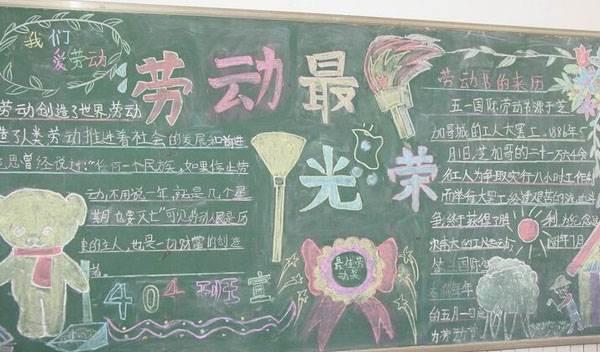 我们
爱劳动
劳动最
光荣
劳动创造了世界,劳动
造了人类劳动推进着社会的发展和前进
克思曾经说过:"任何一个民族,如果停止劳
动,不用说一年,就是几个星
期,也要灭亡"可见劳动人民是历
史的主人,也是一切财富的创造
者。
404 宣
最佳劳
动奖
劳动节的来历
五一国际劳动节源于芝
加哥城的工人大罢工,1886年5
月1日,芝加哥的二十一万六千余
名工人为争取实行八小时工作制
而举行大罢工,经过艰苦的
争,终于获得了胜利,为纪念这
次伟大的工人运动
1889年7月
第二国际
的五月一日
为劳动